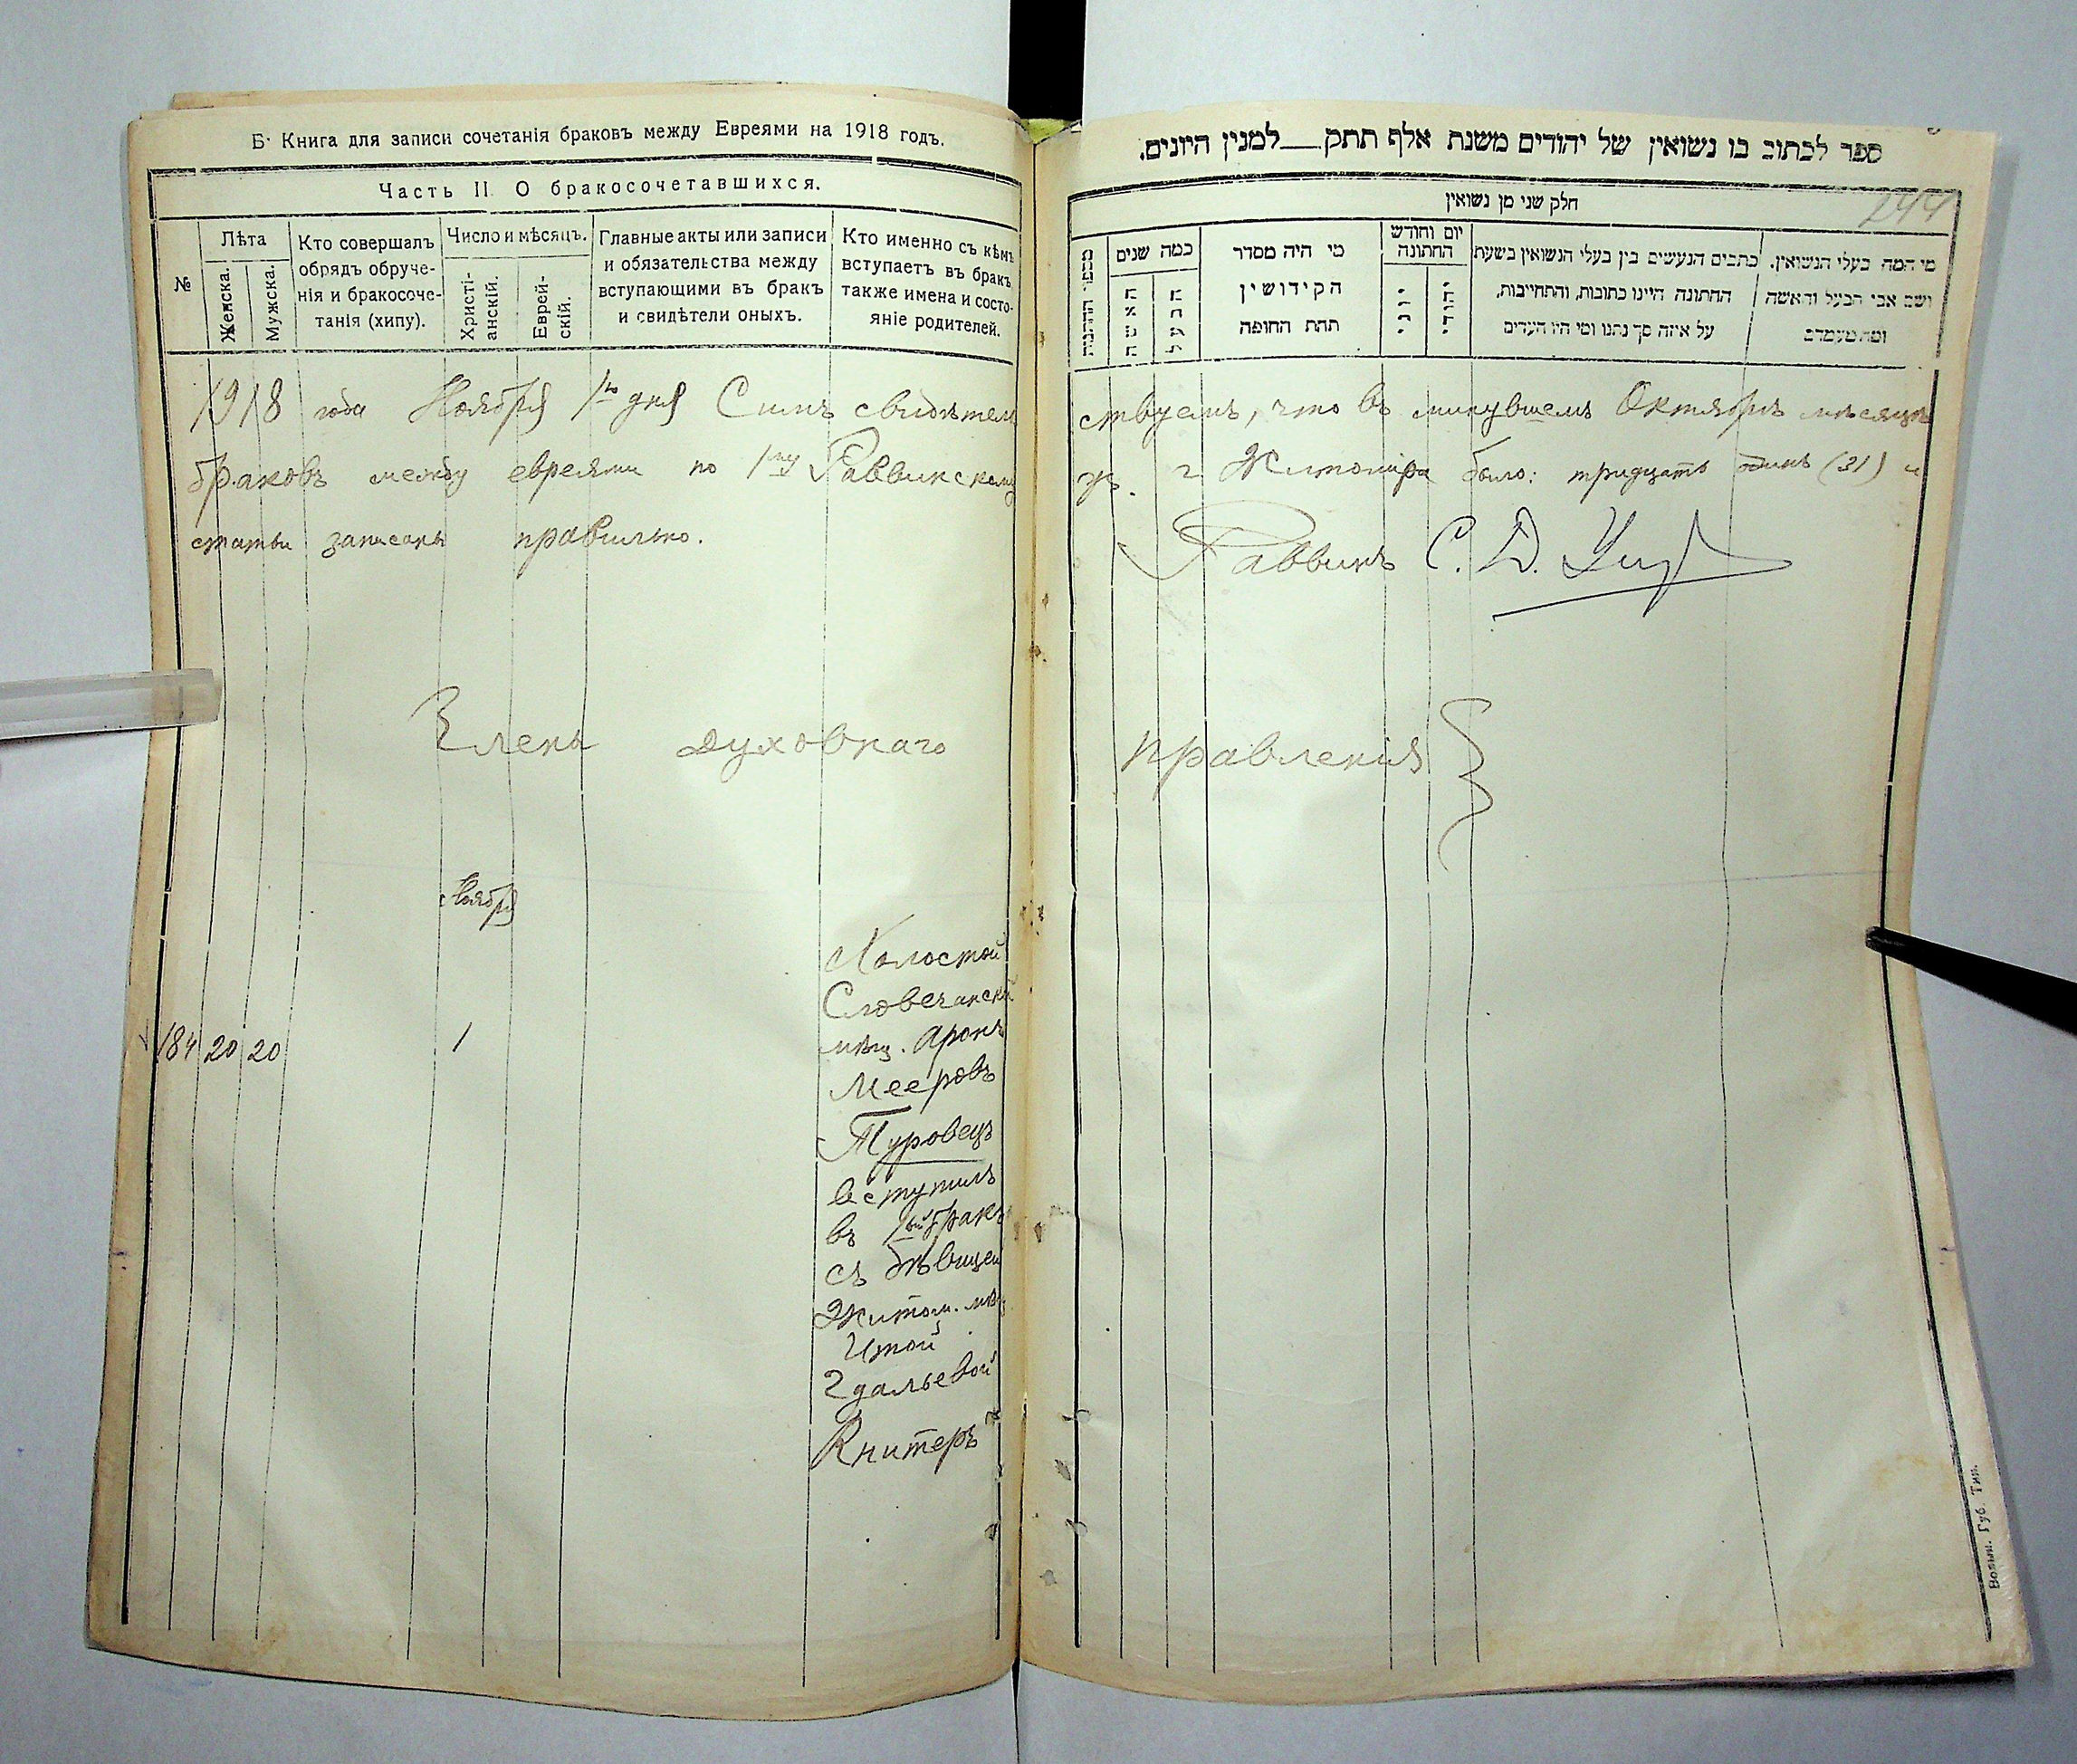 Б. Книга для записи сочетанія браковъ между Евреями на 1918 годъ.
Часть II. О бракосочетавшихся.
№
Лѣта
Женска.
Мужска.
Кто совершалъ
обрядъ обруче-
нія и бракосоче-
танія (хипу).
Число и мѣсяцъ.
Христі-
анскій.
Еврей-
скій.
Главные акты или записи
и обязательства между
вступающими въ бракъ
и свидѣтели оныхъ.
Кто именно съ кѣмъ
вступаетъ въ бракъ
также имена и состо-
яніе родителей.
1918 года Ноября 1го дня Симъ свидѣтель
браковъ между евреями по 1му Раввинскому
статьи записаны правильно.
Члены духовнаго
Ноября
184 20 20 1
Холостой
Словечанскій
мѣщ. Аронъ
Мееровъ
Туровецъ
вступилъ
въ 1ый бракъ
съ дѣвицею
Житом. мѣщ
Итой
Гдальевой
Книтеръ
ספר לכתוב בו נשואין של יהודים משנת אלף תתק___למנין היונים.
חלק שני מן נשואין
244
מספר החתונות
כמה שנים
האשה
הבעל
מי היה מסדר
הקידושין
תחת החופה
יום וחודש
החתונה
יוני
יהודי
כתבים הנעשים בין בעלי הנשואין בשעת
החתונה היינו כתובות, והתחייבות,
על איזה סך נתנו ומי היו העדים
מי המה בעלי הנשואין.
ושם אבי הבעל והאשה
ומה מעמדם
ствуемъ, что въ минувшемъ Октябрѣ мѣсяцѣ
г Житоміра было: тридцать одинъ (31) и
Раввинъ С. Д.
правленія
Волын. Губ. Тип.